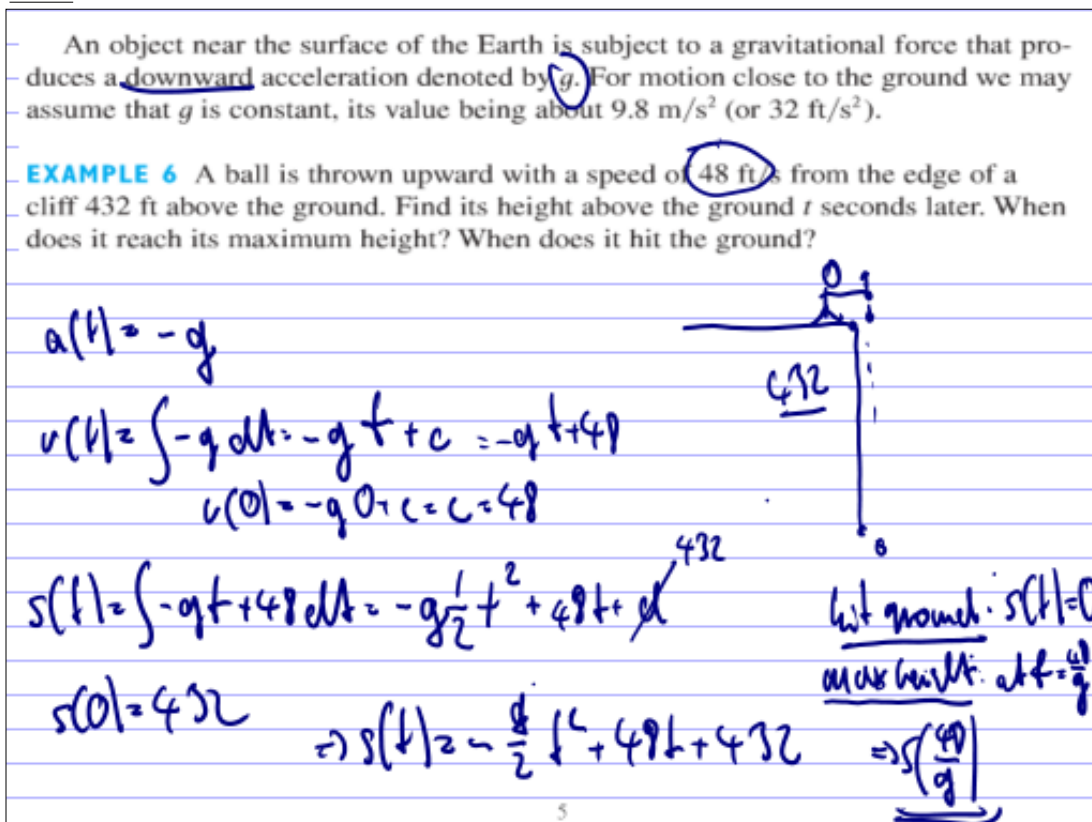 An object near the surface of the Earth is subject to a gravitational force that pro-
duces a downward acceleration denoted by g. For motion close to the ground we may
assume that g is constant, its value being about 9.8 m/s² (or 32 ft/s²).
EXAMPLE 6 A ball is thrown upward with a speed of 48 ft/s from the edge of a
cliff 432 ft above the ground. Find its height above the ground t seconds later. When
does it reach its maximum height? When does it hit the ground?
a(t) = -g
432
v(t) = ∫ -g dt = -g t + c = -g t + 48
v(0) = -g 0 + c = c = 48
0
432
s(t) = ∫ -gt + 48 dt = -g 1/2 t² + 48t + d
hit ground: s(t) = 0
max height: at t = 48/g
s(0) = 432
=> s(t) = - g/2 t² + 48t + 432
=> s(48/g)
5